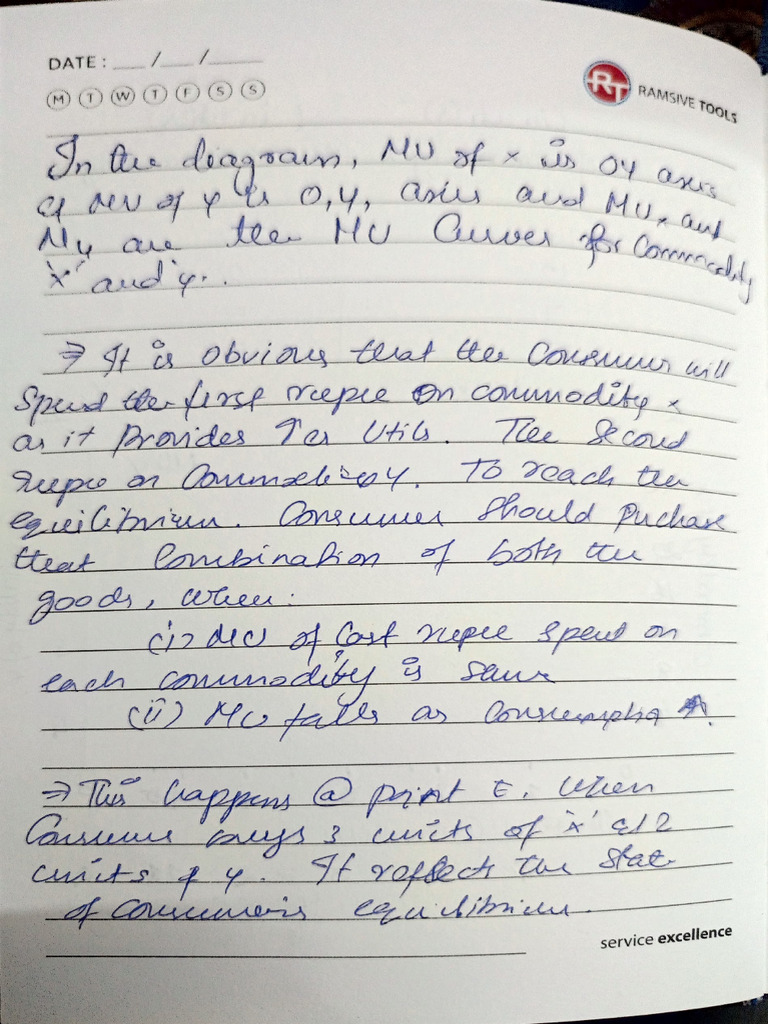 DATE : ___ / ___ / ______
M T W T F S S
RT RAMSIVE TOOLS
In the diagram, MU of x is OY axis
& MU of y is O,Y, axis and MUx and
My are the MU Curves for Commodity
'x' and 'y'.
⇒ It is obvious that the Consumer will
Spend the first rupee on commodity x
as it Provides Utils. The Second
rupee on Commodity. To reach the
equilibrium. Consumer Should Puchase
that Combination of both the
goods, when:
(i) MU of last rupee spent on
each commodity is same
(ii) MU falls as Consumptio ↑.
⇒ This happens @ point E, when
Consumer buys 3 units of 'x' & 2
units of y. It reflects the State
of Consumer's equilibrium.
service excellence